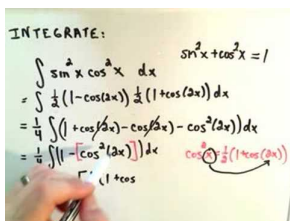 INTEGRATE:
sin²x+cos²x=1
∫ sin²x cos²x dx
= ∫ ½ (1-cos(2x)) ½ (1+cos(2x)) dx
= ¼ ∫(1+cos(2x)-cos(2x)-cos²(2x)) dx
= ¼ ∫(1-[cos²(2x)]) dx
cos²x=½(1+cos(2x))
(1+cos